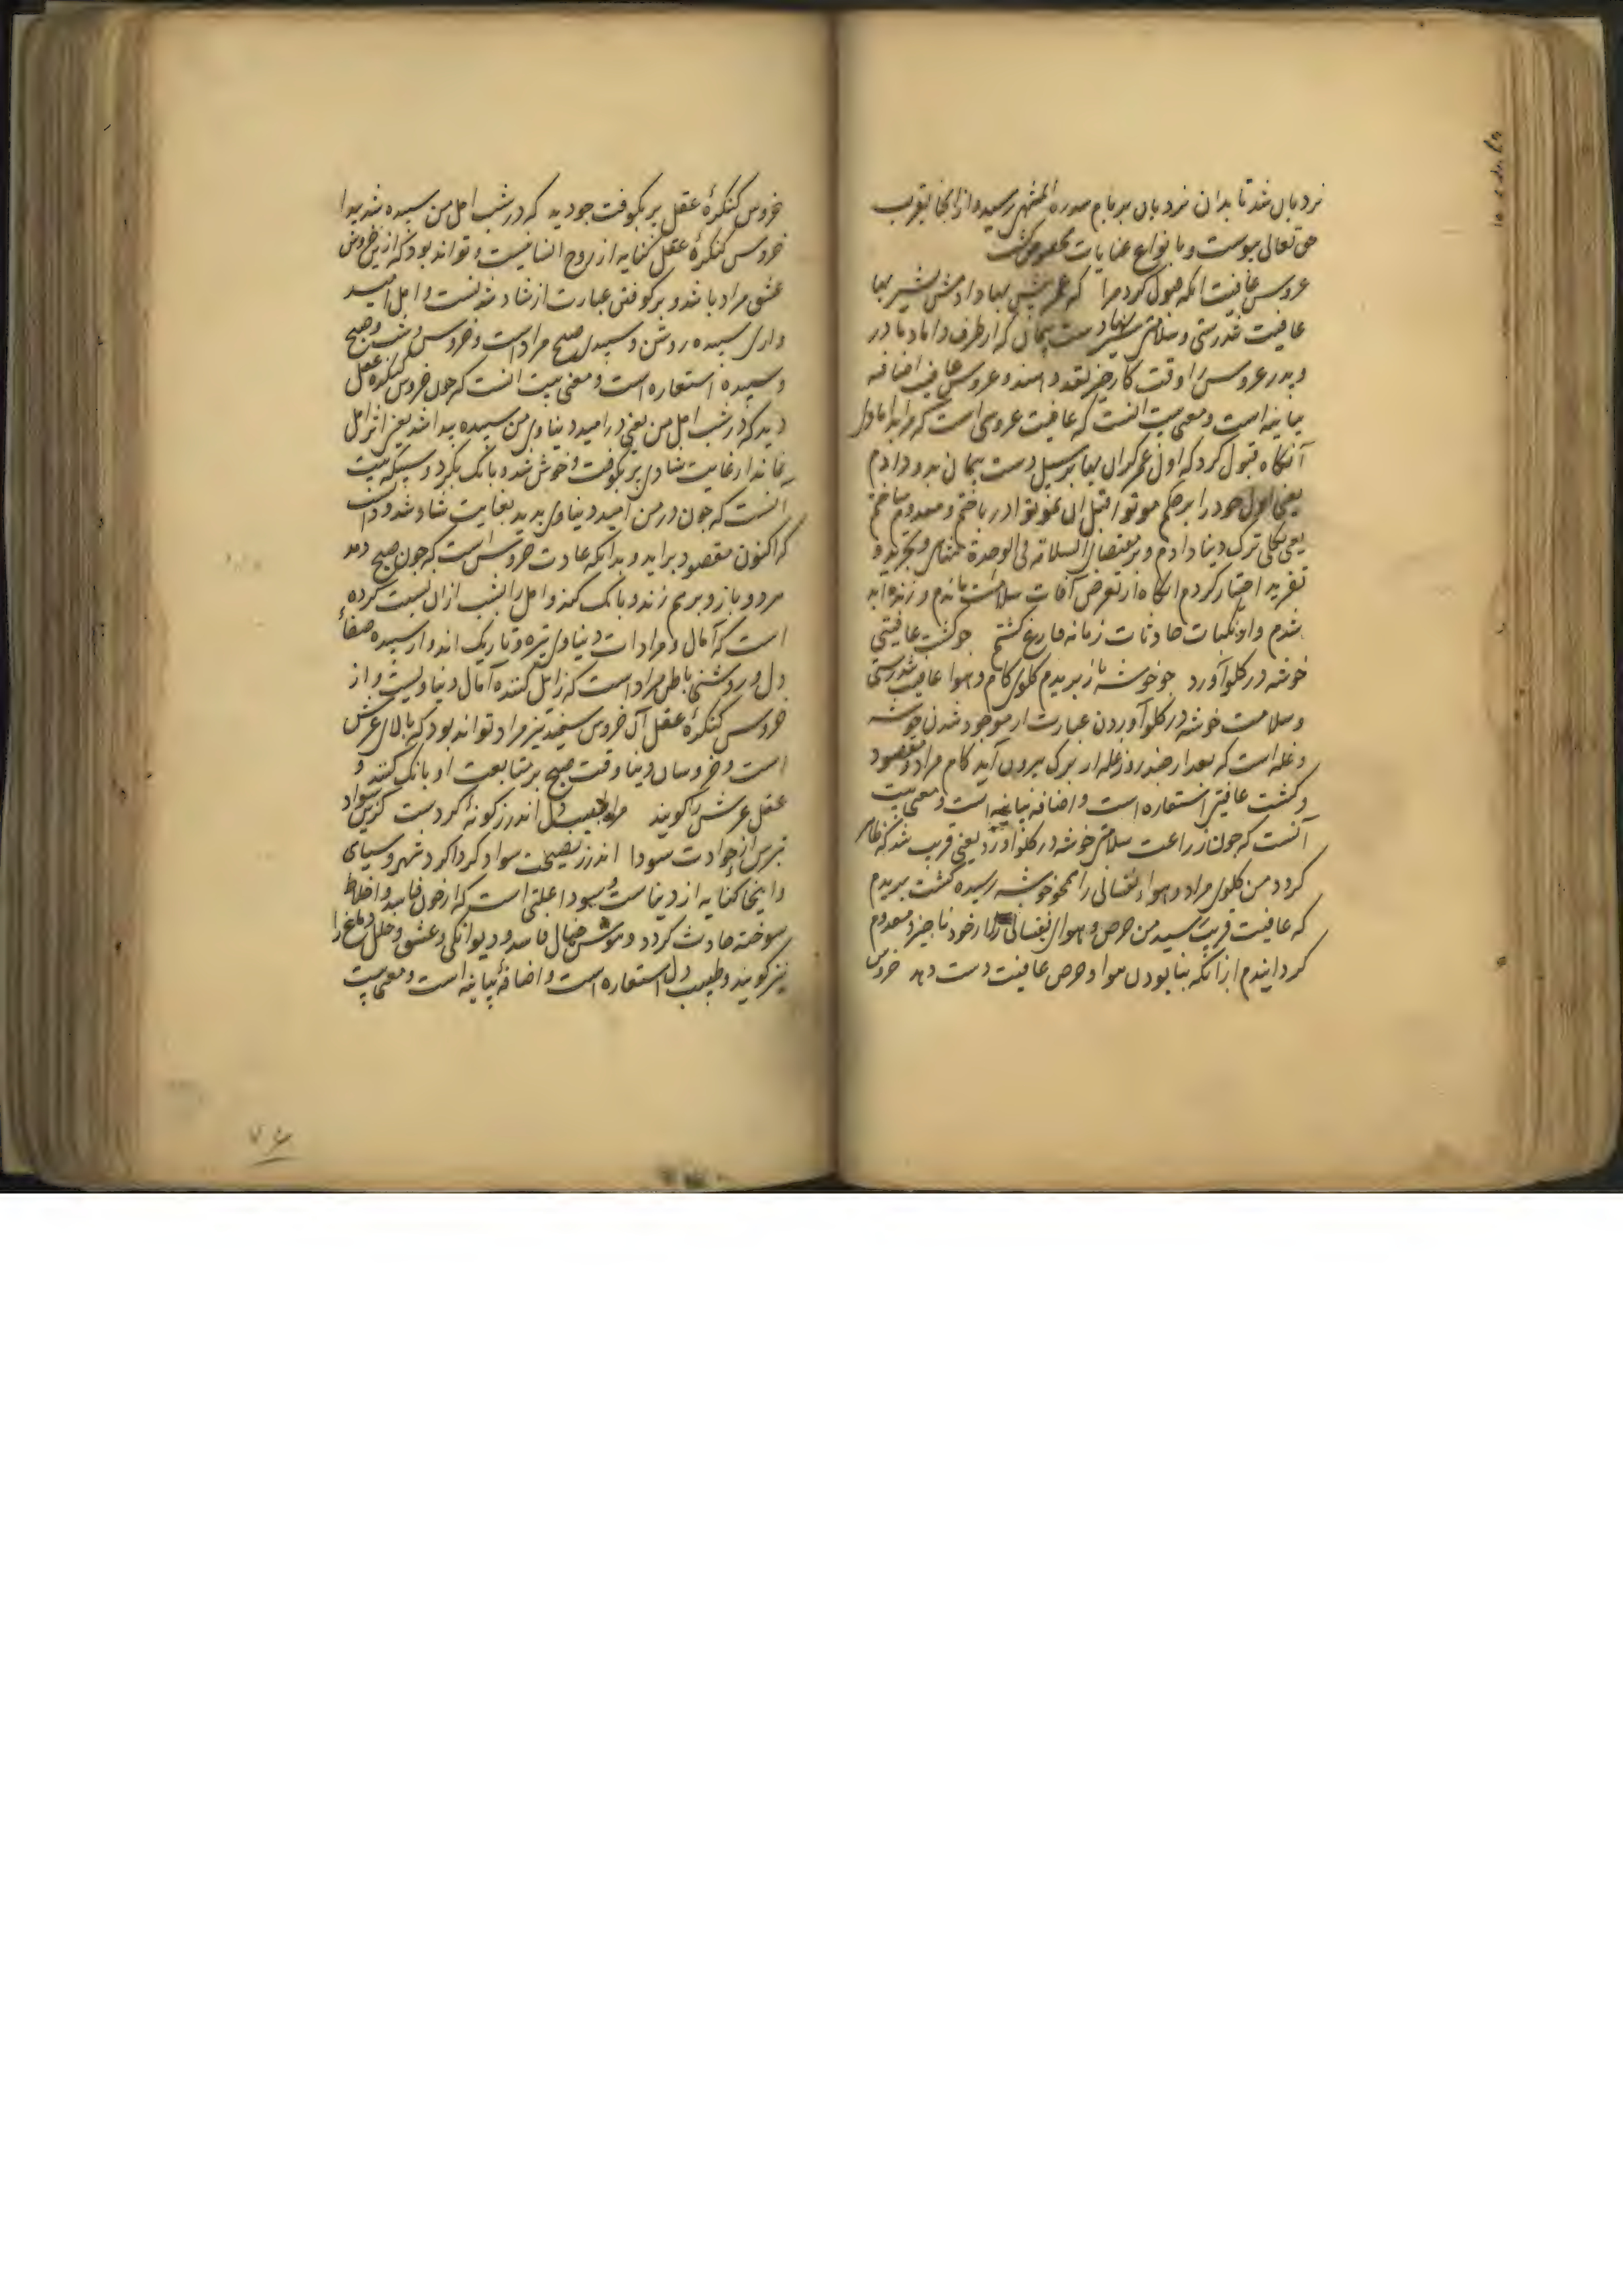 نردبان شد تا بدان نردبان بر بام سدرة المنتهی رسید و از انجا بقرب
حق تعالی پیوست و بانواع عنایات مخصوص گشت
عروس عافیت انکه قبول کرد مرا که عمر پیش بها دادمش شیر بها
عافیت تندرستی و سلامتی شیربها دست پیمان که از طرف داماد مادر
و پدر عروس را وقت کار خیر نقد دهند و عروس عافیت اضافه
بیانیه است و معنی بیت انست که عافیت عروسی است که مرا
آنگاه قبول کرد که اول عمر گران بها بر سبیل دست پیمان بدو دادم
یعنی اول خود را بر حکم موتوا قبل ان تموتوا در باختم و معدوم ساختم
یعنی بکلی ترک دنیا دادم و بر مقتضای السلامة فی الوحدة تنهای و تجرید و
تفرید اختیار کردم انگاه از تعرض آفات سلامت ماندم و زنده ابد
شدم و از نکبات حادثات زمانه فارغ گشتم چو کشت عافیتی
خوشه در گلو آورد چو خوشه باز بریدم گلوی کام و هوا عافیت تندرستی
و سلامت خوشه در گلو آوردن عبارت از موجود شدن خوشه
و غله است که بعد از چند روز غله از برگ بیرون آید کام مراد و مقصود
و کشت عافیتی استعاره است و اضافه بیانیه است و معنی بیت
آنست که چون زراعت سلامتی خوشه در گلو آورد یعنی قریب شد که ظاهر
گردد من گلوی مراد و هواء نفسانی را همچو خوشه رسیده کشت بریدم
که عافیت قریب رسید من حرص و هوای نفسانی را از خود ناچیز و معدوم
گردانیدم از آنکه بنابودن هوا و حرص عافیت دست دهد خروس
خروس کنگرهٔ عقل پر بکوفت چو دید که در شب امل من سپیده شد پیدا
خروس کنگرهٔ عقل کنایه از روح انسانیست و تواند بود که ازین خروس
عشق مراد باشد و پر کوفتن عبارت از شاد شدنست و امل امید
و ازی سپیده روشن و سپیدی صبح مراد است و خروس و شب و صبح
و سپیده استعاره است و معنی بیت انست که چون خروس کنگره عقل
دید که در شب امل من یعنی در امید دنیاوی من سپیده پیدا شد یعنی اثر امل
نماند از غایت شادی پر بکوفت و خوش شد و بانک بکرد و سپیکه بیت
آنست که چون در من امید دنیاوی بدید بغایت شاد شد و دانست
که اکنون مقصود بر اید و بدانکه عادت خروس است که چون صبح دمد
هر دو بازو بر هم زند و بانک کند و امل را بشب ازان نسبت کرده
است که آمال و مرادات دنیاوی تیره و تاریک اند و از سپیده صفاء
دل و روشنی باطن مراد است که زایل کننده آمال دنیاویست و از
خروس کنگرهٔ عقل آن خروس سپید نیز مراد تواند بود که بالای عرش
است و خروسان دنیا وقت صبح بر متابعت او بانک کنند و
عقل عرش را گویند مرا طبیب دل اندرز گونهٔ کردست کزین سواد
بترس از حوادث سودا اندرز نصیحت سواد گرداگرد شهر و سیاهی
و اینجا کنایه از دنیاست و سودا علتی است که از خون فاسد و اخلاط
سوخته حادث گردد و خیال فاسد و دیوانگی و عشق و خلل دماغ را
نیز گویند و طبیب دل استعاره است و اضافهٔ بیانیه است و معنی بیت